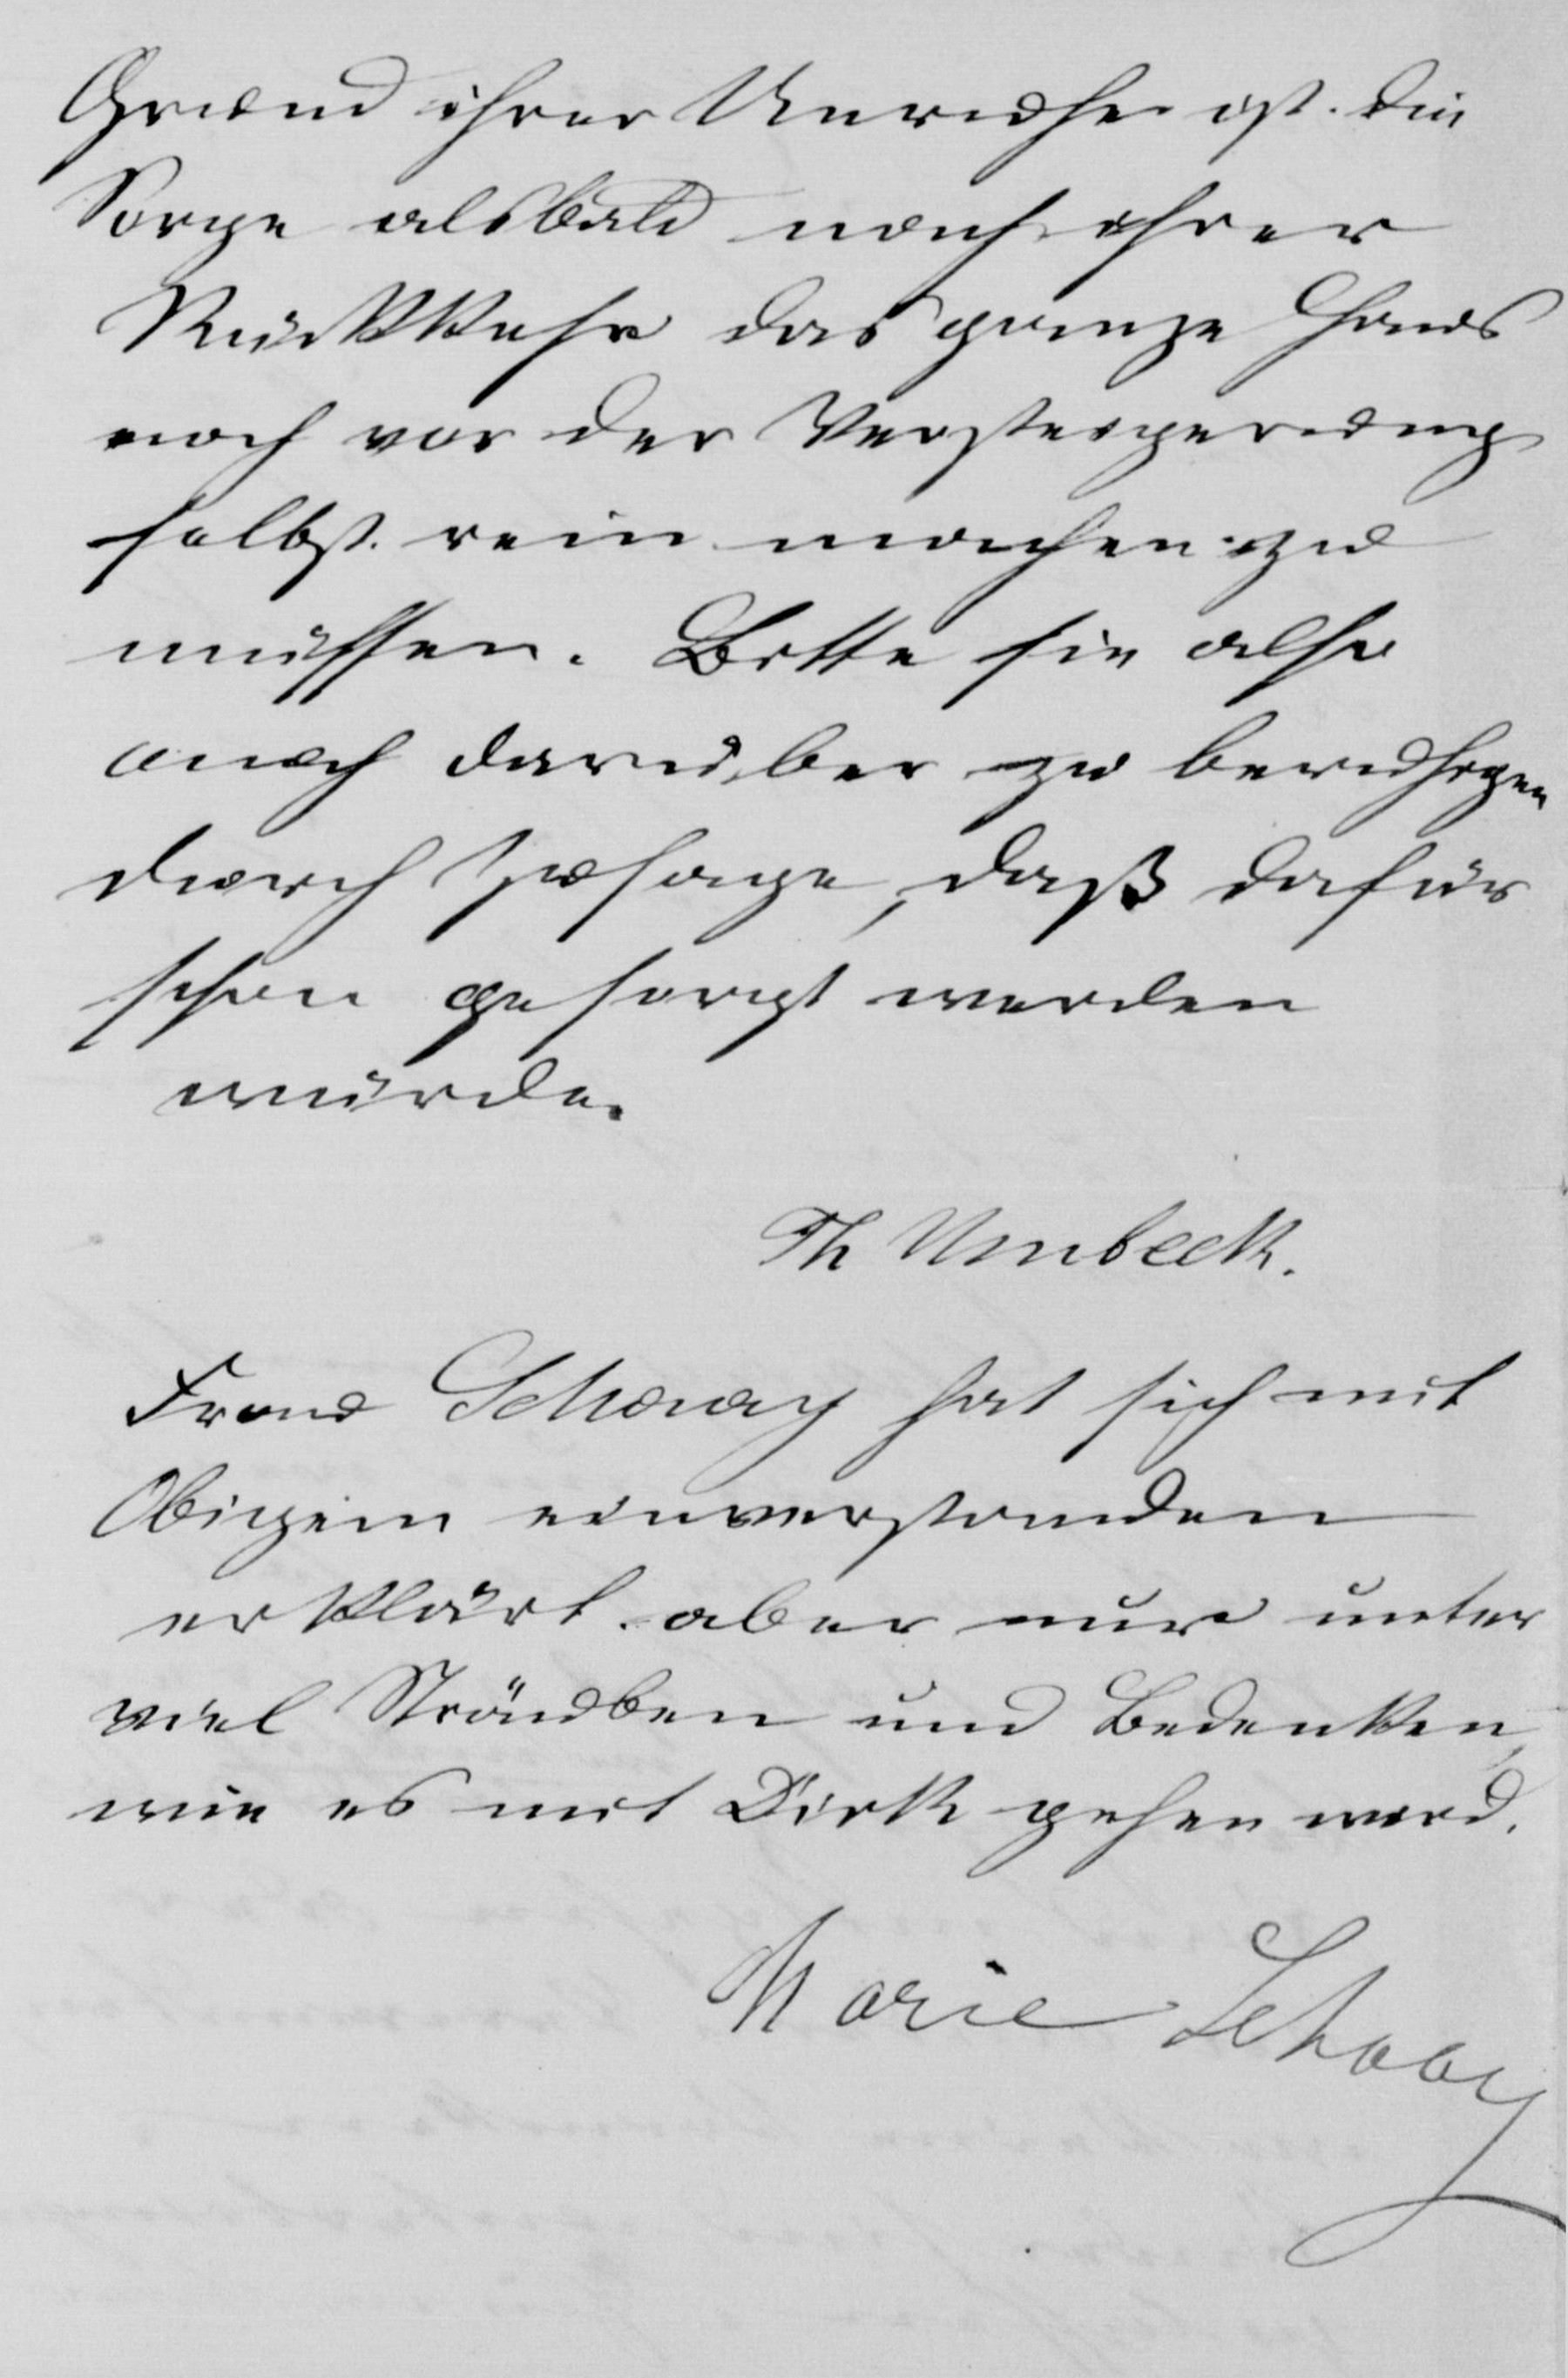 Grund ihrer Unruhe ist die
Sorge alsbald nach ihrer
Rückkehr das ganze Haus
noch vor der Versteigerung
selbst rein machen zu
müssen. Bitte sie also
auch darüber zu beruhigen
durch Zusage, daß dafür
schon gesorgt werden
würde.
Th Umbeck.
Frau Schaay hat sich mit
Obigem einverstanden
erklärt aber nur unter
viel Sträuben und Bedenken,
wie es mit Dirk gehen wird.
Marie Schaay